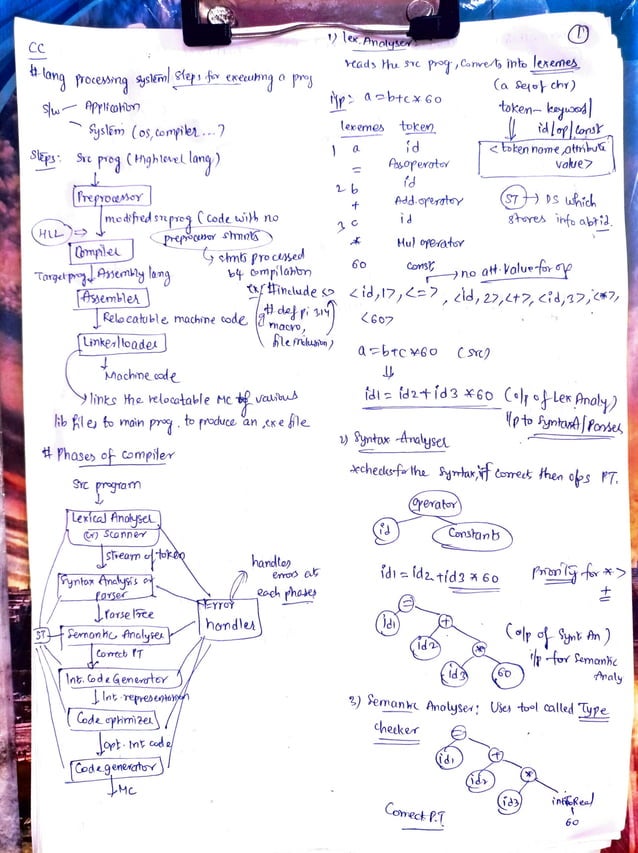 CC
# lang processing system/ steps for executing a prog
s/w - Application
System (os, compiler ...?)
Steps: Src prog (High level lang)
Preprocessor
modified src prog (code with no
preprocessor stmnts)
HLL
Compiler
stmts processed
b4 compilation
Target prog Assembly lang
Assembler
#include <>
# def pi 3.14
macro,
file inclusion)
Relocatable machine code
Linker/loader
Machine code
links the relocatable MC of various
lib files to main prog. to produce an .exe file
# Phases of compiler
Src program
Lexical Analyser
(or) Scanner
stream of token
Syntax Analysis or
parser
Parse tree
ST
Semantic Analyser
Correct PT
Int. Code Generator
Int. representation
Code optimizer
opt. Int code
Code generator
MC
Error
handler
handles
errors at
each phases
1
1) lex. Analyser:
reads the src prog, converts into lexemes
(a seq of chr)
i/p: a = b+c*60
token - keyword/
id/op/const
<token name, attribute
value>
lexemes token
1 a id
= Assoperator
2 b id
+ Add. operator
3 c id
* Mul operator
60 const
ST → DS which
stores info abt id.
no att. value for op
<id,1>, <=>, <id,2>, <+>, <id,3>, <*>,
<60>
a = b+c*60 (src)
id1 = id2 + id3 * 60 (o/p of Lex Analy)
i/p to Syntax A/ Parser
2) Syntax Analyser
*checks for the syntax, if correct then o/ps PT.
operator
id
Constants
id1 = id2 + id3 * 60
Priority for * >
+
=
id1
+
id2
*
id3
60
(o/p of Synt An)
i/p for Semantic
Analy
3) Semantic Analyser: Uses tool called Type
checker
=
id1
+
id2
*
id3
inttoReal
60
Correct P.T